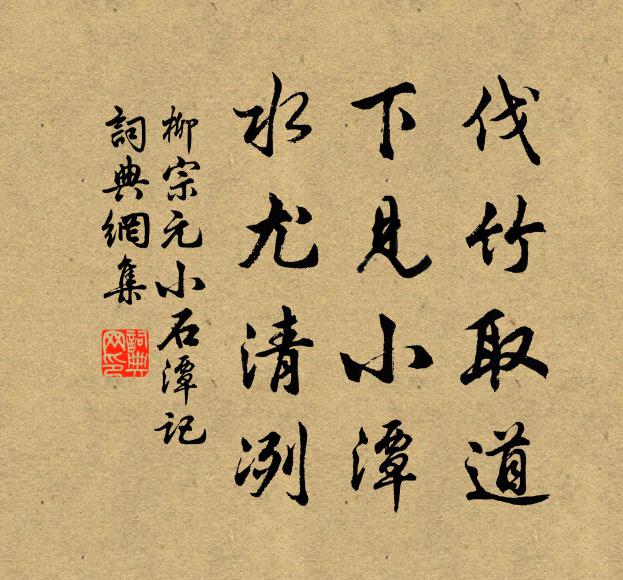 伐竹取道
下見小潭
水尤清冽
柳宗元小石潭记
詞典網集
詞典网印